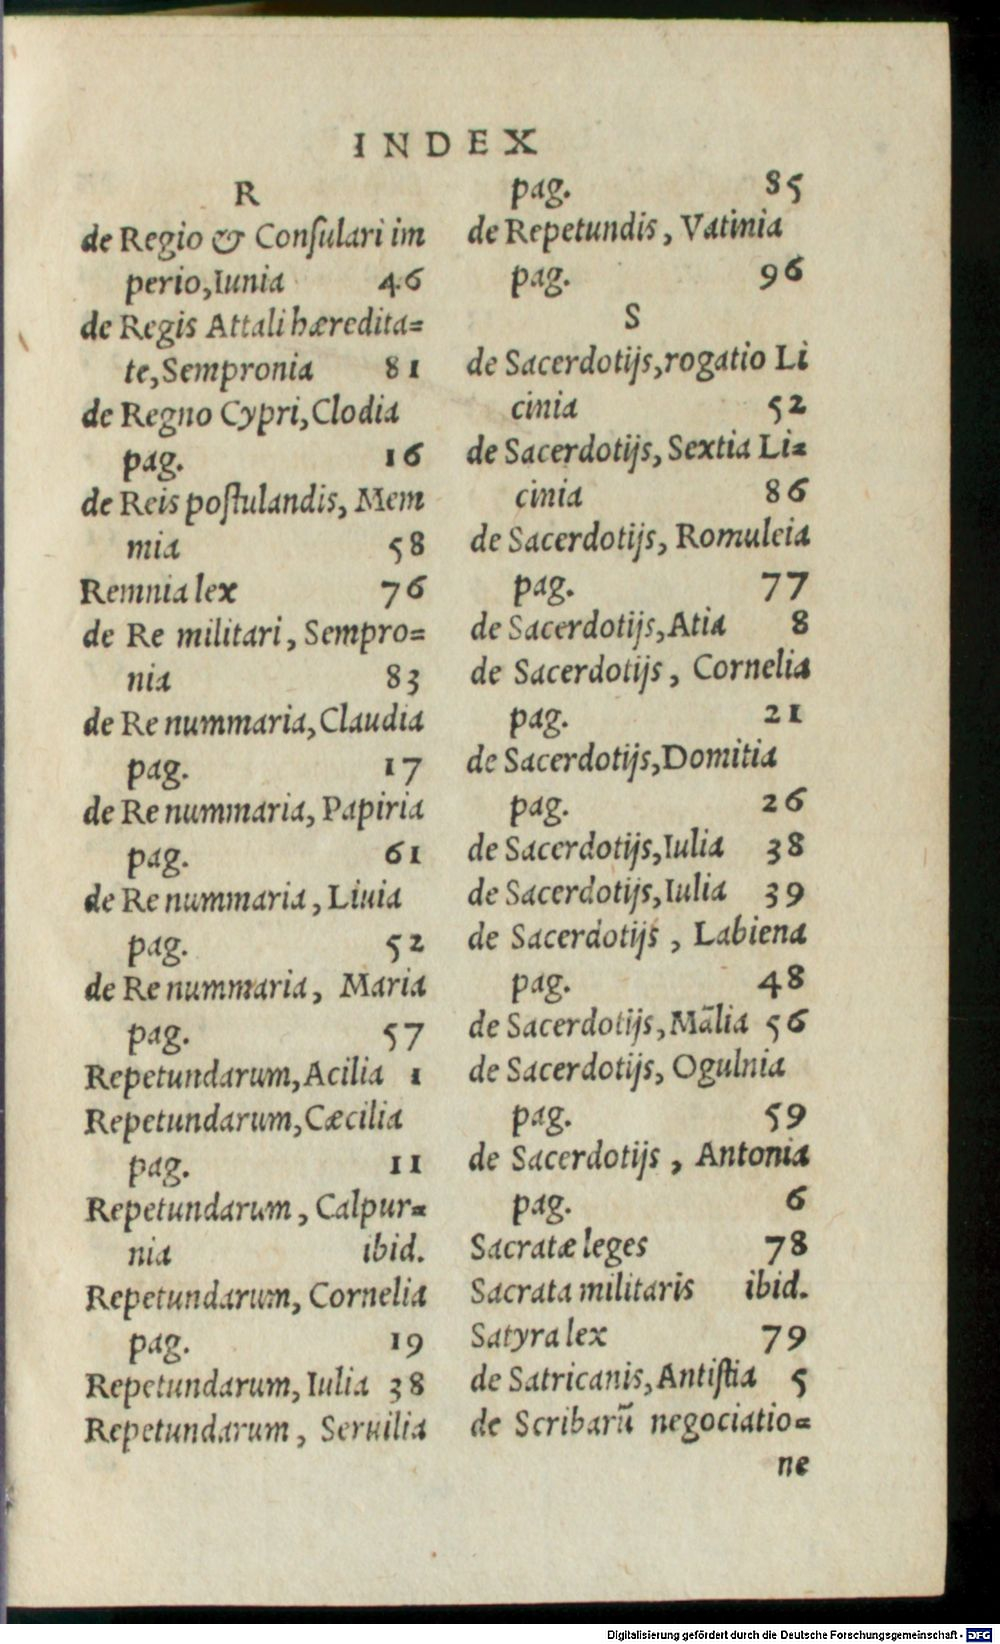 INDEX
R
de Regio & Conſulari im
perio,Iunia 46
de Regis Attali hæredita=
te,Sempronia 81
de Regno Cypri,Clodia
pag. 16
de Reis poſtulandis, Mem
mia 58
Remnia lex 76
de Re militari, Sempro=
nia 83
de Re nummaria,Claudia
pag. 17
de Re nummaria, Papiria
pag. 61
de Re nummaria, Liuia
pag. 52
de Re nummaria, Maria
pag. 57
Repetundarum,Acilia 1
Repetundarum,Cæcilia
pag. 11
Repetundarum, Calpur=
nia ibid.
Repetundarum, Cornelia
pag. 19
Repetundarum, Iulia 38
Repetundarum, Seruilia
pag. 85
de Repetundis, Vatinia
pag. 96
S
de Sacerdotijs,rogatio Li
cinia 52
de Sacerdotijs, Sextia Li=
cinia 86
de Sacerdotijs, Romuleia
pag. 77
de Sacerdotijs,Atia 8
de Sacerdotijs, Cornelia
pag. 21
de Sacerdotijs,Domitia
pag. 26
de Sacerdotijs,Iulia 38
de Sacerdotijs,Iulia 39
de Sacerdotijs, Labiena
pag. 48
de Sacerdotijs,Mãlia 56
de Sacerdotijs, Ogulnia
pag. 59
de Sacerdotijs, Antonia
pag. 6
Sacratæ leges 78
Sacrata militaris ibid.
Satyra lex 79
de Satricanis,Antiſtia 5
de Scribarũ negociatio=
ne
Digitalisierung gefördert durch die Deutsche Forschungsgemeinschaft - DFG